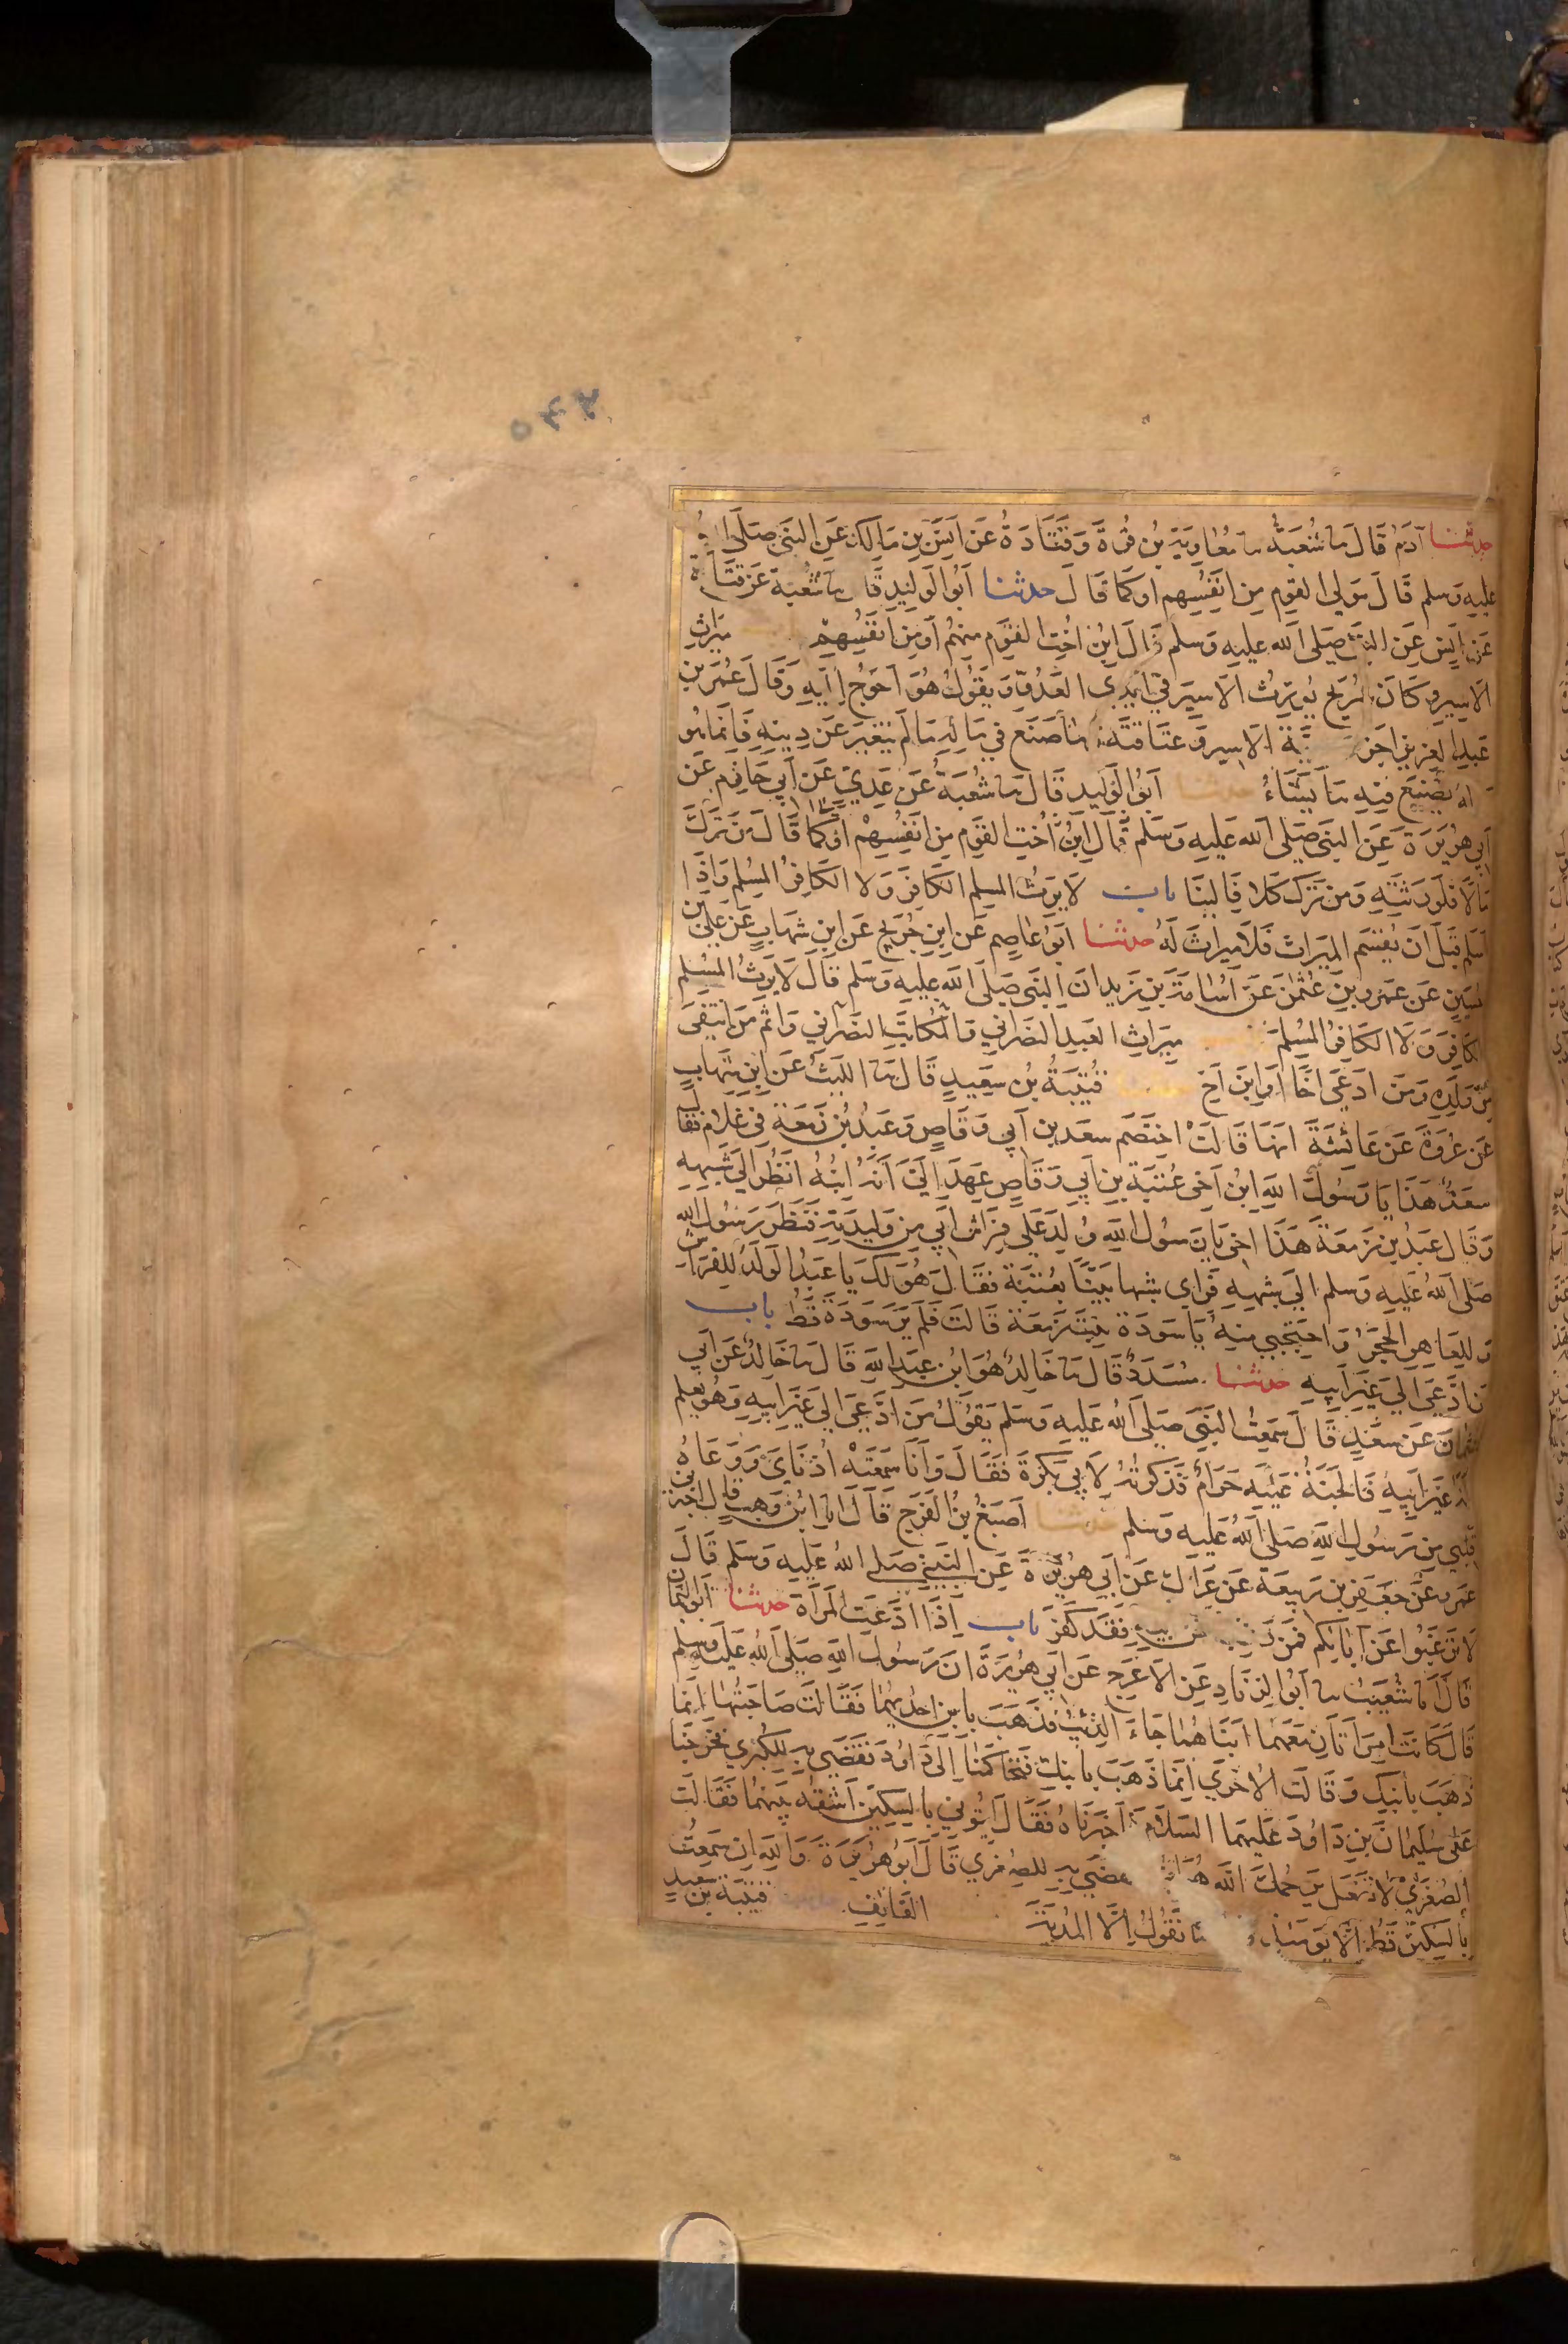 حدثنا آدم قال نا شعبة نا معاوية بن قرة وقتادة عن انس بن مالك عن النبي صلى
عليه وسلم قال مولى القوم من انفسهم او كما قال حدثنا ابو الوليد قال نا شعبة عن قتادة
عن انس عن النبي صلى الله عليه وسلم قال ابن اخت القوم منهم او من انفسهم ميراث
الاسير وكان شريح يورث الاسير في ايدي العدو ويقول هو احوج اليه وقال عمر بن
عبد العزيز اجز الاسير وعتاقته وما صنع في ماله ما لم يتغير عن دينه فانما هو
له يصنع فيه ما يشاء حدثنا ابو الوليد قال نا شعبة عن عدي عن ابي حازم عن
ابي هريرة عن النبي صلى الله عليه وسلم قال ابن اخت القوم من انفسهم او كما قال من ترك
مالا فلورثته ومن ترك كلا فالينا باب لا يرث المسلم الكافر ولا الكافر المسلم واذا
اسلم قبل ان يقسم الميراث فلا ميراث له حدثنا ابو عاصم عن ابن جريج عن ابن شهاب عن علي بن
حسين عن عمرو بن عثمن عن اسامة بن زيد ان النبي صلى الله عليه وسلم قال لا يرث المسلم
الكافر ولا الكافر المسلم ميراث العبد النصراني والمكاتب النصراني واثم من انتفى
من ولده ومن ادعى اخا او ابن اخ حدثنا قتيبة بن سعيد قال نا الليث عن ابن شهاب
عن عروة عن عائشة انها قالت اختصم سعد بن ابي وقاص وعبد بن زمعة في غلام فقال
سعد هذا يا رسول الله ابن اخي عتبة بن ابي وقاص عهد الي انه ابنه انظر الى شبهه
وقال عبد بن زمعة هذا اخي يا رسول الله ولد على فراش ابي من وليدته فنظر رسول الله
صلى الله عليه وسلم الى شبهه فراى شبها بينا بعتبة فقال هو لك يا عبد الولد للفراش
وللعاهر الحجر واحتجبي منه يا سودة بنت زمعة قالت فلم ير سودة قط باب
من ادعى الى غير ابيه حدثنا مسدد قال نا خالد هو ابن عبد الله قال نا خالد عن ابي
عثمان عن سعد قال سمعت النبي صلى الله عليه وسلم يقول من ادعى الى غير ابيه وهو يعلم
انه غير ابيه فالجنة عليه حرام فذكرته لابي بكرة فقال وانا سمعته اذناي ووعاه
قلبي من رسول الله صلى الله عليه وسلم حدثنا اصبغ بن الفرج قال انا ابن وهب قال اخبرني
عمرو عن جعفر بن ربيعة عن عراك عن ابي هريرة عن النبي صلى الله عليه وسلم قال
لا ترغبوا عن آبائكم فمن ابيه فقد كفر باب اذا ادعت المراة حدثنا ابو اليمان
قال انا شعيب نا ابو الزناد عن الاعرج عن ابي هريرة ان رسول الله صلى الله عليه وسلم
قال كانت امراتان معهما ابناهما جاء الذئب فذهب بابن احديهما فقالت صاحبتها انما
ذهب بابنك وقالت الاخرى انما ذهب بابنك فتحاكمتا الى داود فقضى به للكبرى فخرجتا
على سليمان بن داود عليهما السلام فاخبرتاه فقال ايتوني بالسكين اشقه بينهما فقالت
الصغرى لا تفعل يرحمك الله هو فقضى به للصغرى قال ابو هريرة والله ان سمعت
بالسكين قط الا يومئذ ما نقول الا المدية القائف حدثنا قتيبة بن سعيد